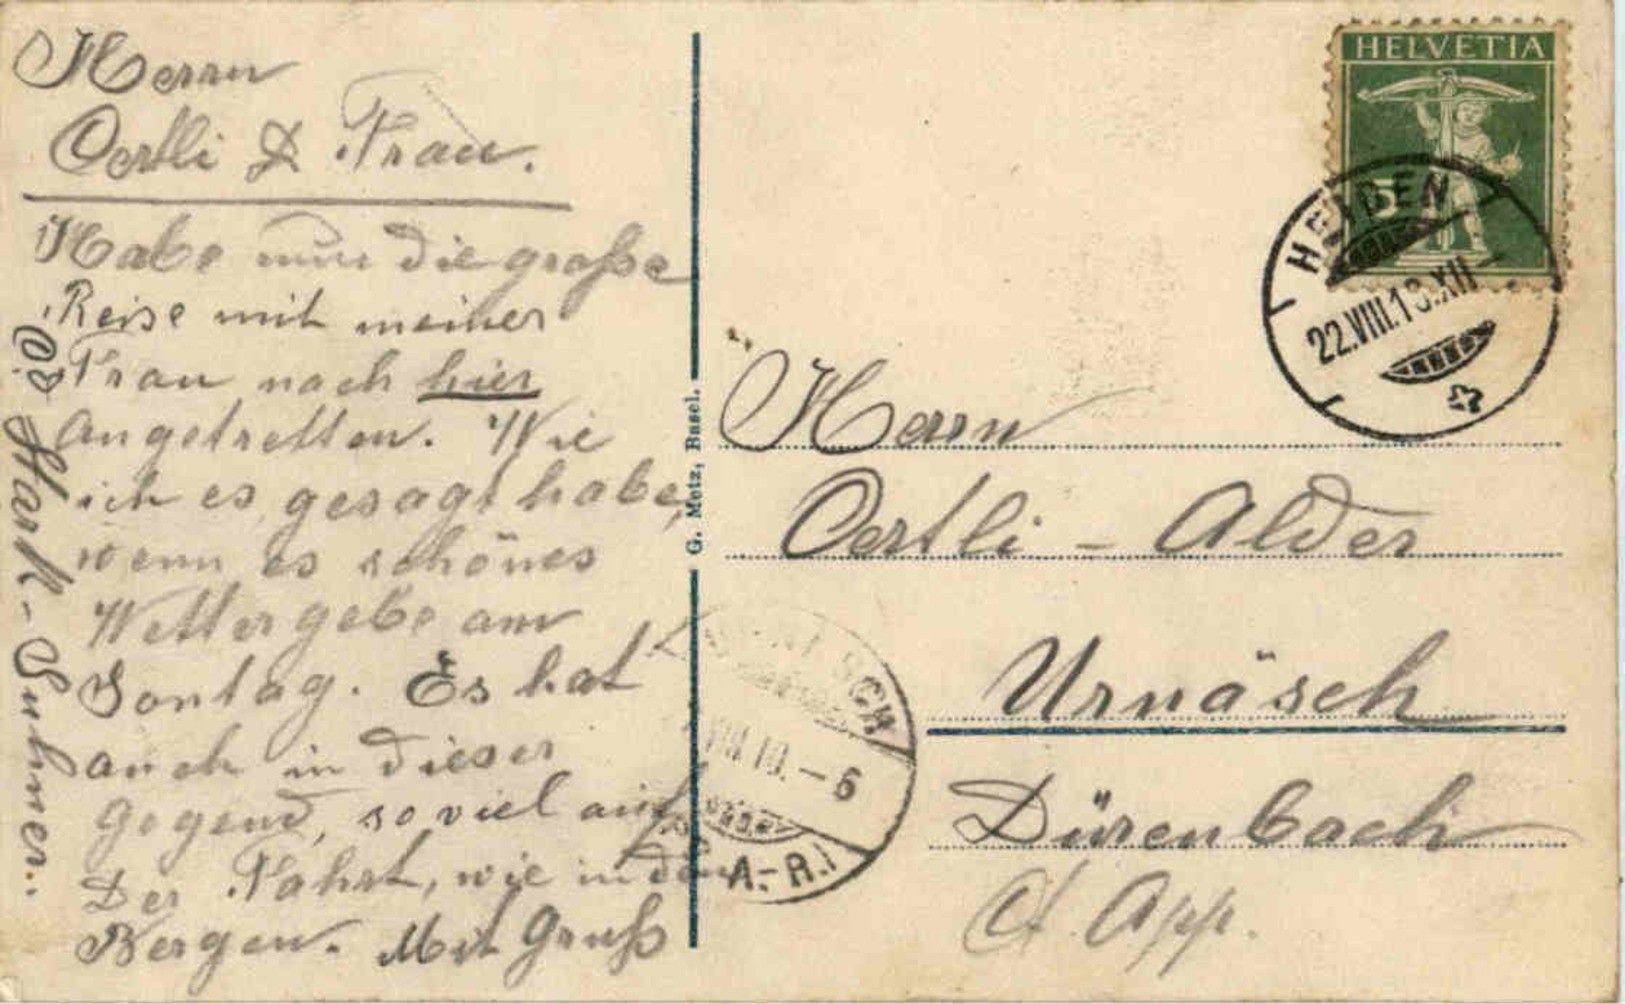 Herrn
Oertli & Frau.
Habe nun die große
Reise mit meiner
Frau nach hier
angetretten. Wie
ich es gesagt habe,
wenn es schönes
Wetter gebe am
Sontag. Es hat
auch in dieser
Gegend, so viel auf
der Fahrt, wie in den
Bergen. Mit Gruß
Stark-Suhner.
G. Metz, Basel.
HELVETIA
5
HEIDEN
22.VIII.13.XII-
Herrn
Oertli - Alder
Urnäsch
Dürenbach
Ct. App.
SCH
VIII.10.-6
A.-R.